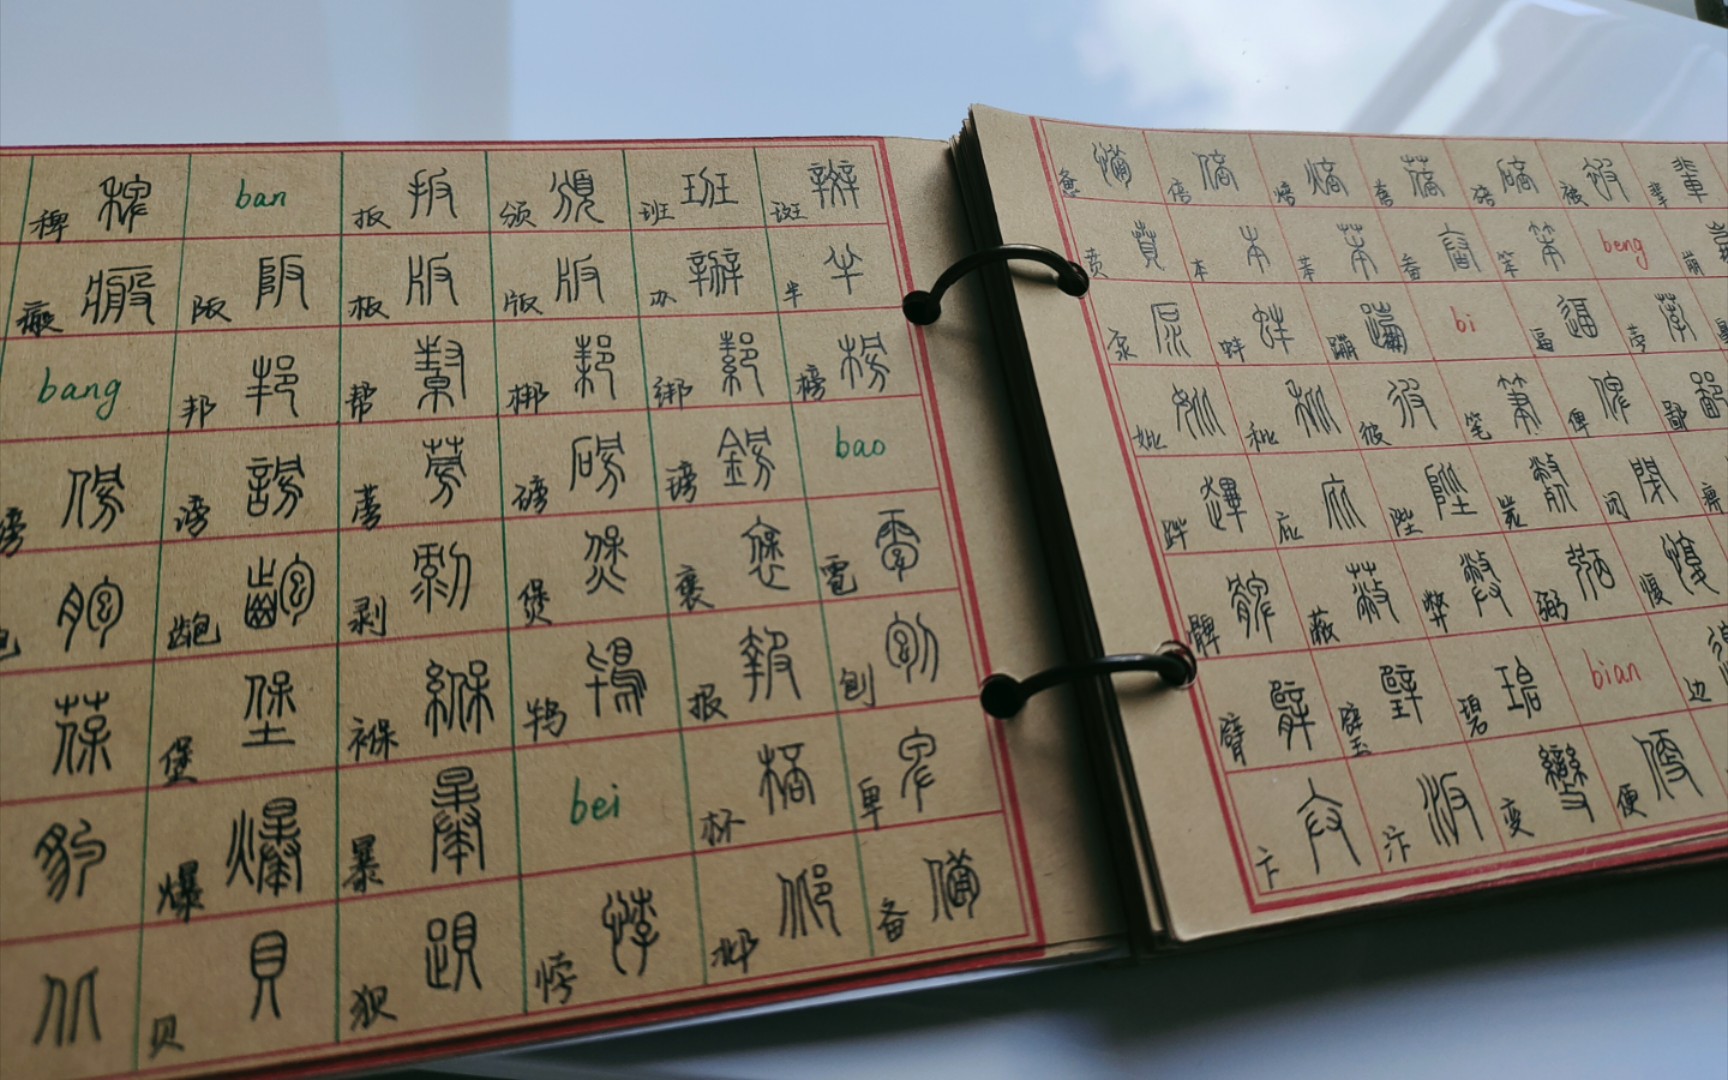 稗 ban 扳 颁 班 斑
瘢 阪 板 版 办 半
bang 邦 帮 梆 绑 榜
傍 谤 蒡 磅 镑 bao
胞 龅 剥 煲 褒 雹
葆 堡 褓 鸨 报 刨
豹 爆 暴 bei 杯 卑
北 贝 狈 悖 邶 备
惫 倍 焙 蓓 碚 被 辈
贲 本 苯 畚 笨 beng
泵 蚌 蹦 bi 逼 荸
妣 秕 彼 笔 俾 鄙
跸 庇 陛 毙 闭
髀 蔽 弊 弼 愎
臂 璧 碧 bian 边
卞 汴 变 便